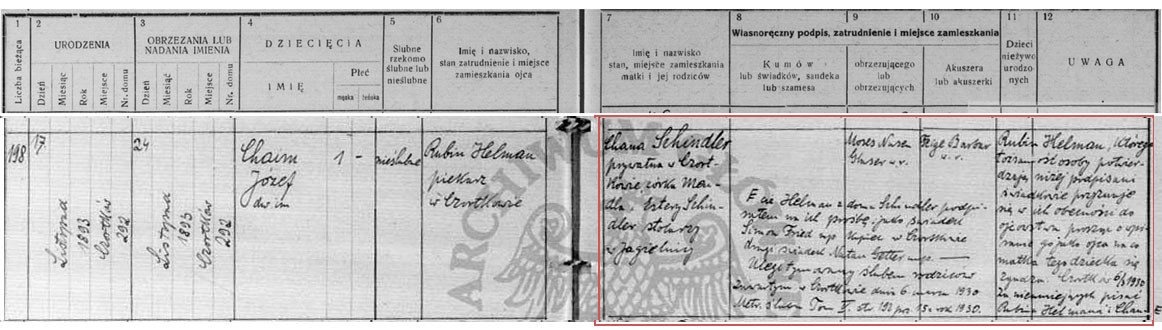 1 2 3 4 5 6
Liczba bieżąca
URODZENIA
OBRZEZANIA LUB
NADANIA IMIENIA
DZIECIĘCIA
Ślubne
rzekomo
ślubne lub
nieślubne
Imię i nazwisko,
stan zatrudnienie i miejsce
zamieszkania ojca
Dzień
Miesiąc
Rok
Miejsce
Nr. domu
Dzień
Miesiąc
Rok
Miejsce
Nr. domu
IMIĘ
Płeć
męska
żeńska
7 8 9 10 11 12
Imię i nazwisko
stan, miejsce zamieszkania
matki i jej rodziców
Własnoręczny podpis, zatrudnienie i miejsce zamieszkania
Kumów
lub świadków, sandeka
lub szamesa
obrzezującego
lub
obrzezujących
Akuszera
lub akuszerki
Dzieci
nieżywo
urodzo-
nych
UWAGA
198
17
Listopad
1893
Czortków
292
24
Listopad
1893
Czortków
292
Chaim
Józef
dw im
1 -
nieślubne
Rubin Helman
piekarz
w Czortkowie
Chana Schindler
prywatna w Czort-
kowie, córka Men-
dla i Estery Schin-
dler stolarzy
w Jagielnicy
Moses
Glaser w.r.
Feige Barbar
w.r.
Helman z domu Schindler podpi-
na ich prośbę, jako świadek
Simon Fried mp. kupiec w Czortkowie
drugi świadek Natan mp.
ślubem rodziców
zawartym w Czortkowie dnia 6 marca 1930
Metr. ślubów Tom V. str. 192 poz. 15 z rok 1930.
Rubin Helman, którego
osoby potwier-
dzają niżej podpisani
świadkowie przyznaje
się w ich obecności do
ojcostwa prosząc o wpi-
sanie go jako ojca
matka tego dziecka się
Czortków 6/3 1930
Rubin Helman i Chan-
ARCHIWUM